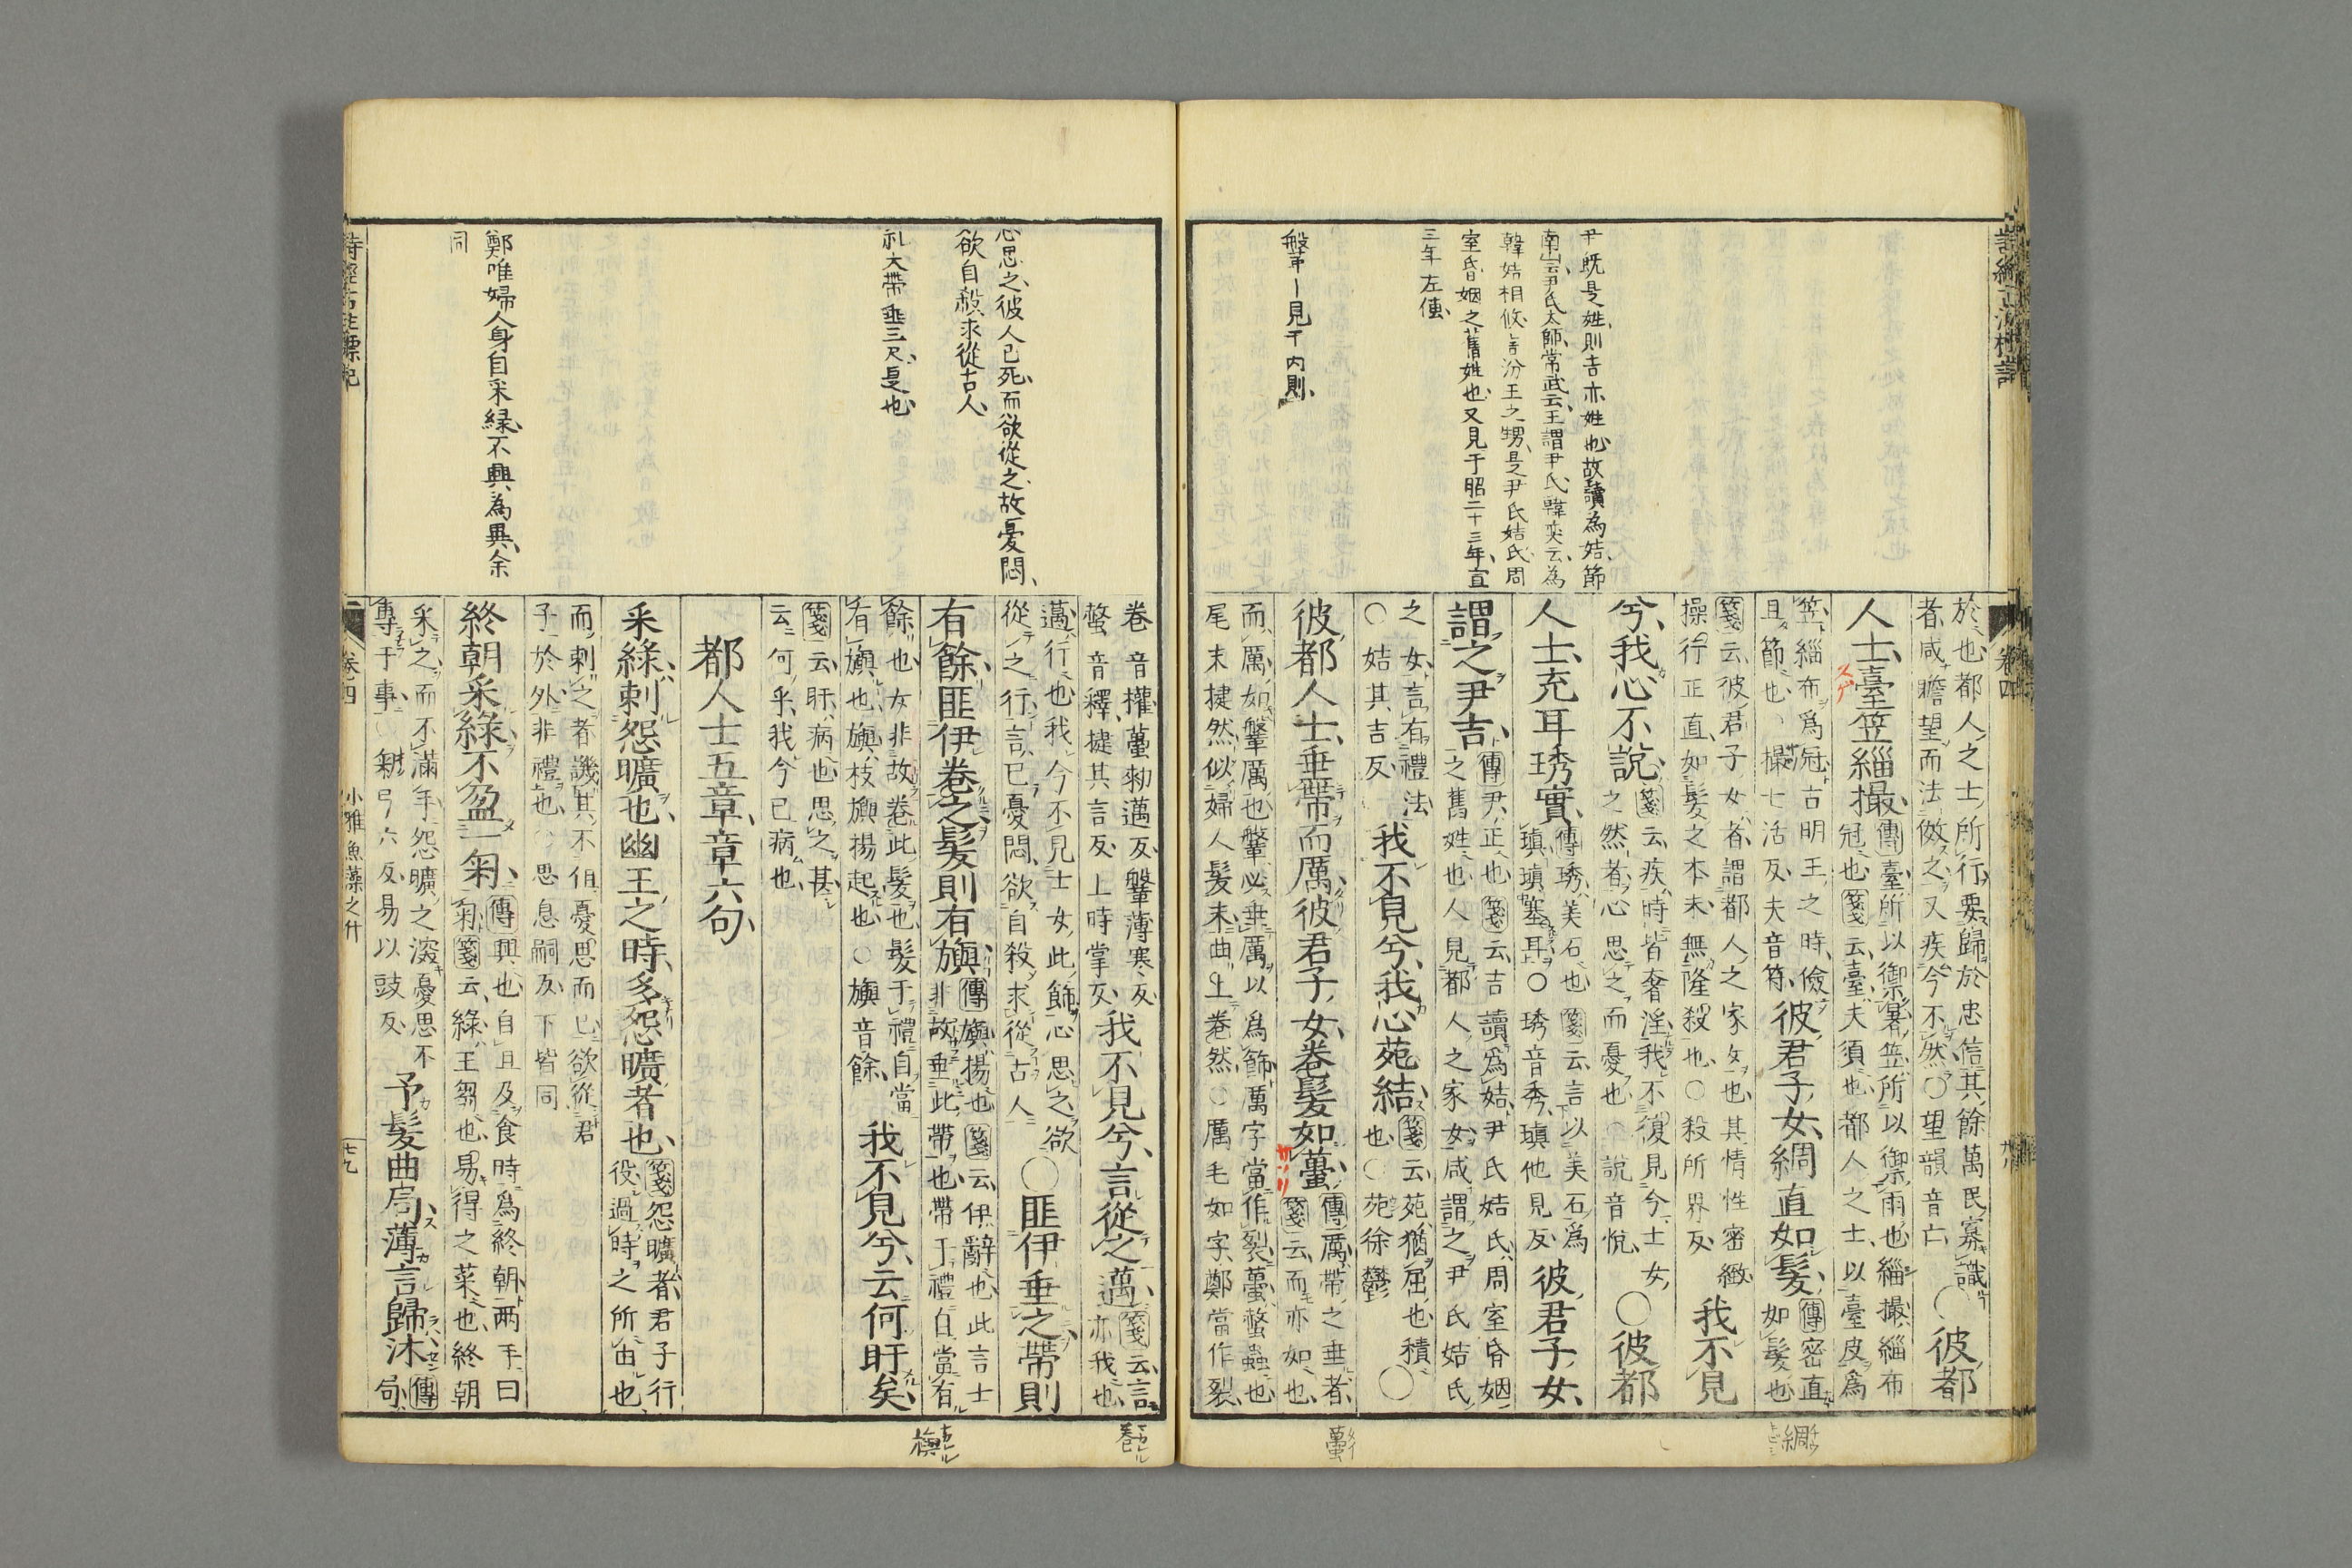 尹既是姓則吉亦姓也故讀為姞節
南山云尹氏太師常武云王謂尹氏韓奕云為
韓姞相攸言汾王之甥是尹氏姞氏周
室昏姻之舊姓也又見于昭二十三年宣
三年左傳
鞶ー見于内則
於也都人之士所行要歸於忠信其餘萬民寡識
者咸瞻望而法傚之又疾今不然○望韻音亡
○彼都
人士臺笠緇撮
傳臺所以御暑笠所以御雨也緇撮緇布
冠也箋云臺夫須也都人之士以臺皮爲
笠緇布爲冠古明王之時儉
且節也○撮七活反夫音符
彼君子女綢直如髮
傳密直
如髮也
箋云彼君子女者謂都人之家女也其情性密緻
操行正直如髮之本末無隆殺也○殺所界反
我不見
兮我心不說
箋云疾時皆奢淫我不復見今士女
之然者心思之而憂也○說音悅
○彼都
人士充耳琇實
傳琇美石也箋云言以美石爲
瑱瑱塞耳○琇音秀瑱他見反
彼君子女
謂之尹吉
傳尹正也箋云吉讀爲姞尹氏姞氏周室昏姻
之舊姓也人見都人之家女咸謂之尹氏姞氏
之女言有禮法
○姞其吉反
我不見兮我心苑結
箋云苑猶屈也積
也○苑徐鬱
○
彼都人士垂帶而厲彼君子女卷髮如蠆
傳厲帶之垂者
箋云而亦如也
而厲如鞶厲也鞶必垂厲以爲飾厲字當作裂蠆螫蟲也
尾末揵然似婦人髮末曲上卷然○厲毛如字鄭當作裂
綢
蠆
詩經
卷四
心思之彼人已死而欲從之故憂悶
欲自殺求從古人
礼大帶垂三尺是也
鄭唯婦人身自采緑不興為異余
同
卷音權蠆勑邁反鞶薄寒反
螫音釋揵其言反上時掌反
我不見兮言從之邁
箋云言
亦我也
邁行也我今不見士女此飾心思之欲
從之行言已憂悶欲自殺求從古人
○匪伊垂之帶則
有餘匪伊卷之髮則有旟
傳旟揚也箋云伊辭也此言士
非故垂此帶也帶于禮自當有
餘也女非故卷此髮也髮于禮自當
有旟也旟枝旟揚起也○旟音餘
我不見兮云何盱矣
箋云盱病也思之甚
云何乎我今已病也
都人士五章章六句
采綠刺怨曠也幽王之時多怨曠者也
箋怨曠者君子行
役過時之所由也
而刺之者譏其不但憂思而已欲從君
子於外非禮也○思息嗣反下皆同
終朝采綠不盈一匊
傳興也自旦及食時爲終朝兩手曰
匊箋云綠王芻也易得之菜也終朝
采之而不滿手怨曠之深憂思不
專于事○匊弓六反易以豉反
予髮曲局薄言歸沐
傳
局
卷
旟
詩經古註標記
卷四
小雅魚藻之什
七九